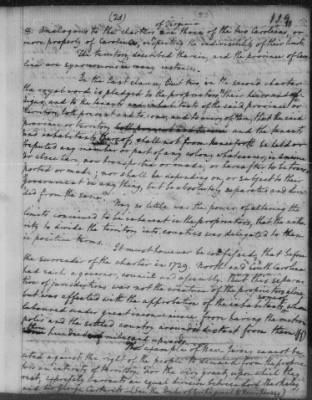 (25)
of Virginia
analogous to the charters are those of the two Carolinas, or
more properly of Carolina, respecting the indivisibility of their limits
The territory described therein, and the province of Caro-
lina are synonymous in many instances.
In the last clause but two in the second charter
the royal word is pledged to the proprietors, their heirs and
assigns, and to the tenants and inhabitants of the said province or
territory, both present and to come, and to every of them, that the said
province or territory and the tenants
and inhabitants thereof, shall not from henceforth be held or
reputed any member or part of any colony whatsoever, in America
or elsewhere, now transported or made, or hereafter to be trans-
ported or made; nor shall be depending on, or subject to their
government in any thing, but be absolutely separated and divi-
ded from the same.
Nay so little was the power of altering the
limits conceived to be inherent in the proprietors, that the autho-
rity to divide the territory into counties was delegated to them
in positive terms.
It must however be confessed, that before
the surrender of the charter in 1729, North and South Carolina
had each a governor, council and assembly. But this separa-
tion of jurisdictions was not the creature of the proprietors alone,
but was effected with the approbation of the inhabitants, who
laboured under great inconvenience from having the metro-
polis and the settled country around distant from them
three hundred miles and upwards.
The example of New Jersey cannot be
cited against the right of the people
entirety of territory. For the very grant upon which they
rest, expressly warrants an equal division between lord Berkely
and Sir George Carteret